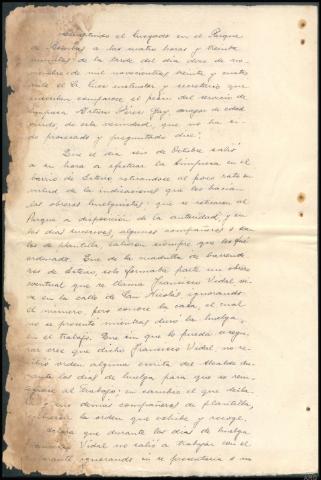 Constituido el Juzgado en el Parque
de a las cuatro horas y treinta
minutos de la tarde del dia doce de no-
viembre de mil novecientos treinta y cuatro
ante el Sr. Juez instructor y secretario que
comparece el peon del servicio de
limpieza Arturo Pérez mayor de edad
de esta vecindad, que no ha si-
do procesado y preguntado dice:
Que el dia seis de Octubre salió
a su hora a efectuar la limpieza en el
barrio de Sotero retirandose al poco rato en
virtud de la indicacion que les hacian
los obreros huelguistas que se retiraron al
Parque a disposición de la autoridad, y en
los dias sucesivos, algunos compañeros o sea
los de plantilla, salieron siempre que les fué
ordenado. Que de la cuadrilla de barrende-
res de Sotero, solo formaba parte un obrero
eventual que se llama Francisco Vidal vi-
ve en la calle de San Nicolás ignorando
el número, pero conoce la casa, el cual
no se presentó mientras duró la huelga,
en el trabajo. Que sin que lo pueda asegu-
rar cree que dicho Francisco Vidal, no re-
cibió orden alguna escrita del Alcalde du-
rante los dias de huelga para que se rein-
tegrase al trabajo; en cambio el que decla-
ra y sus demás compañeros de plantilla
recibieron la orden que exhibe y recoge.
que durante los dias de huelga
Francisco Vidal no salió a trabajar con el
declarante, ignorando si se presentaria a un